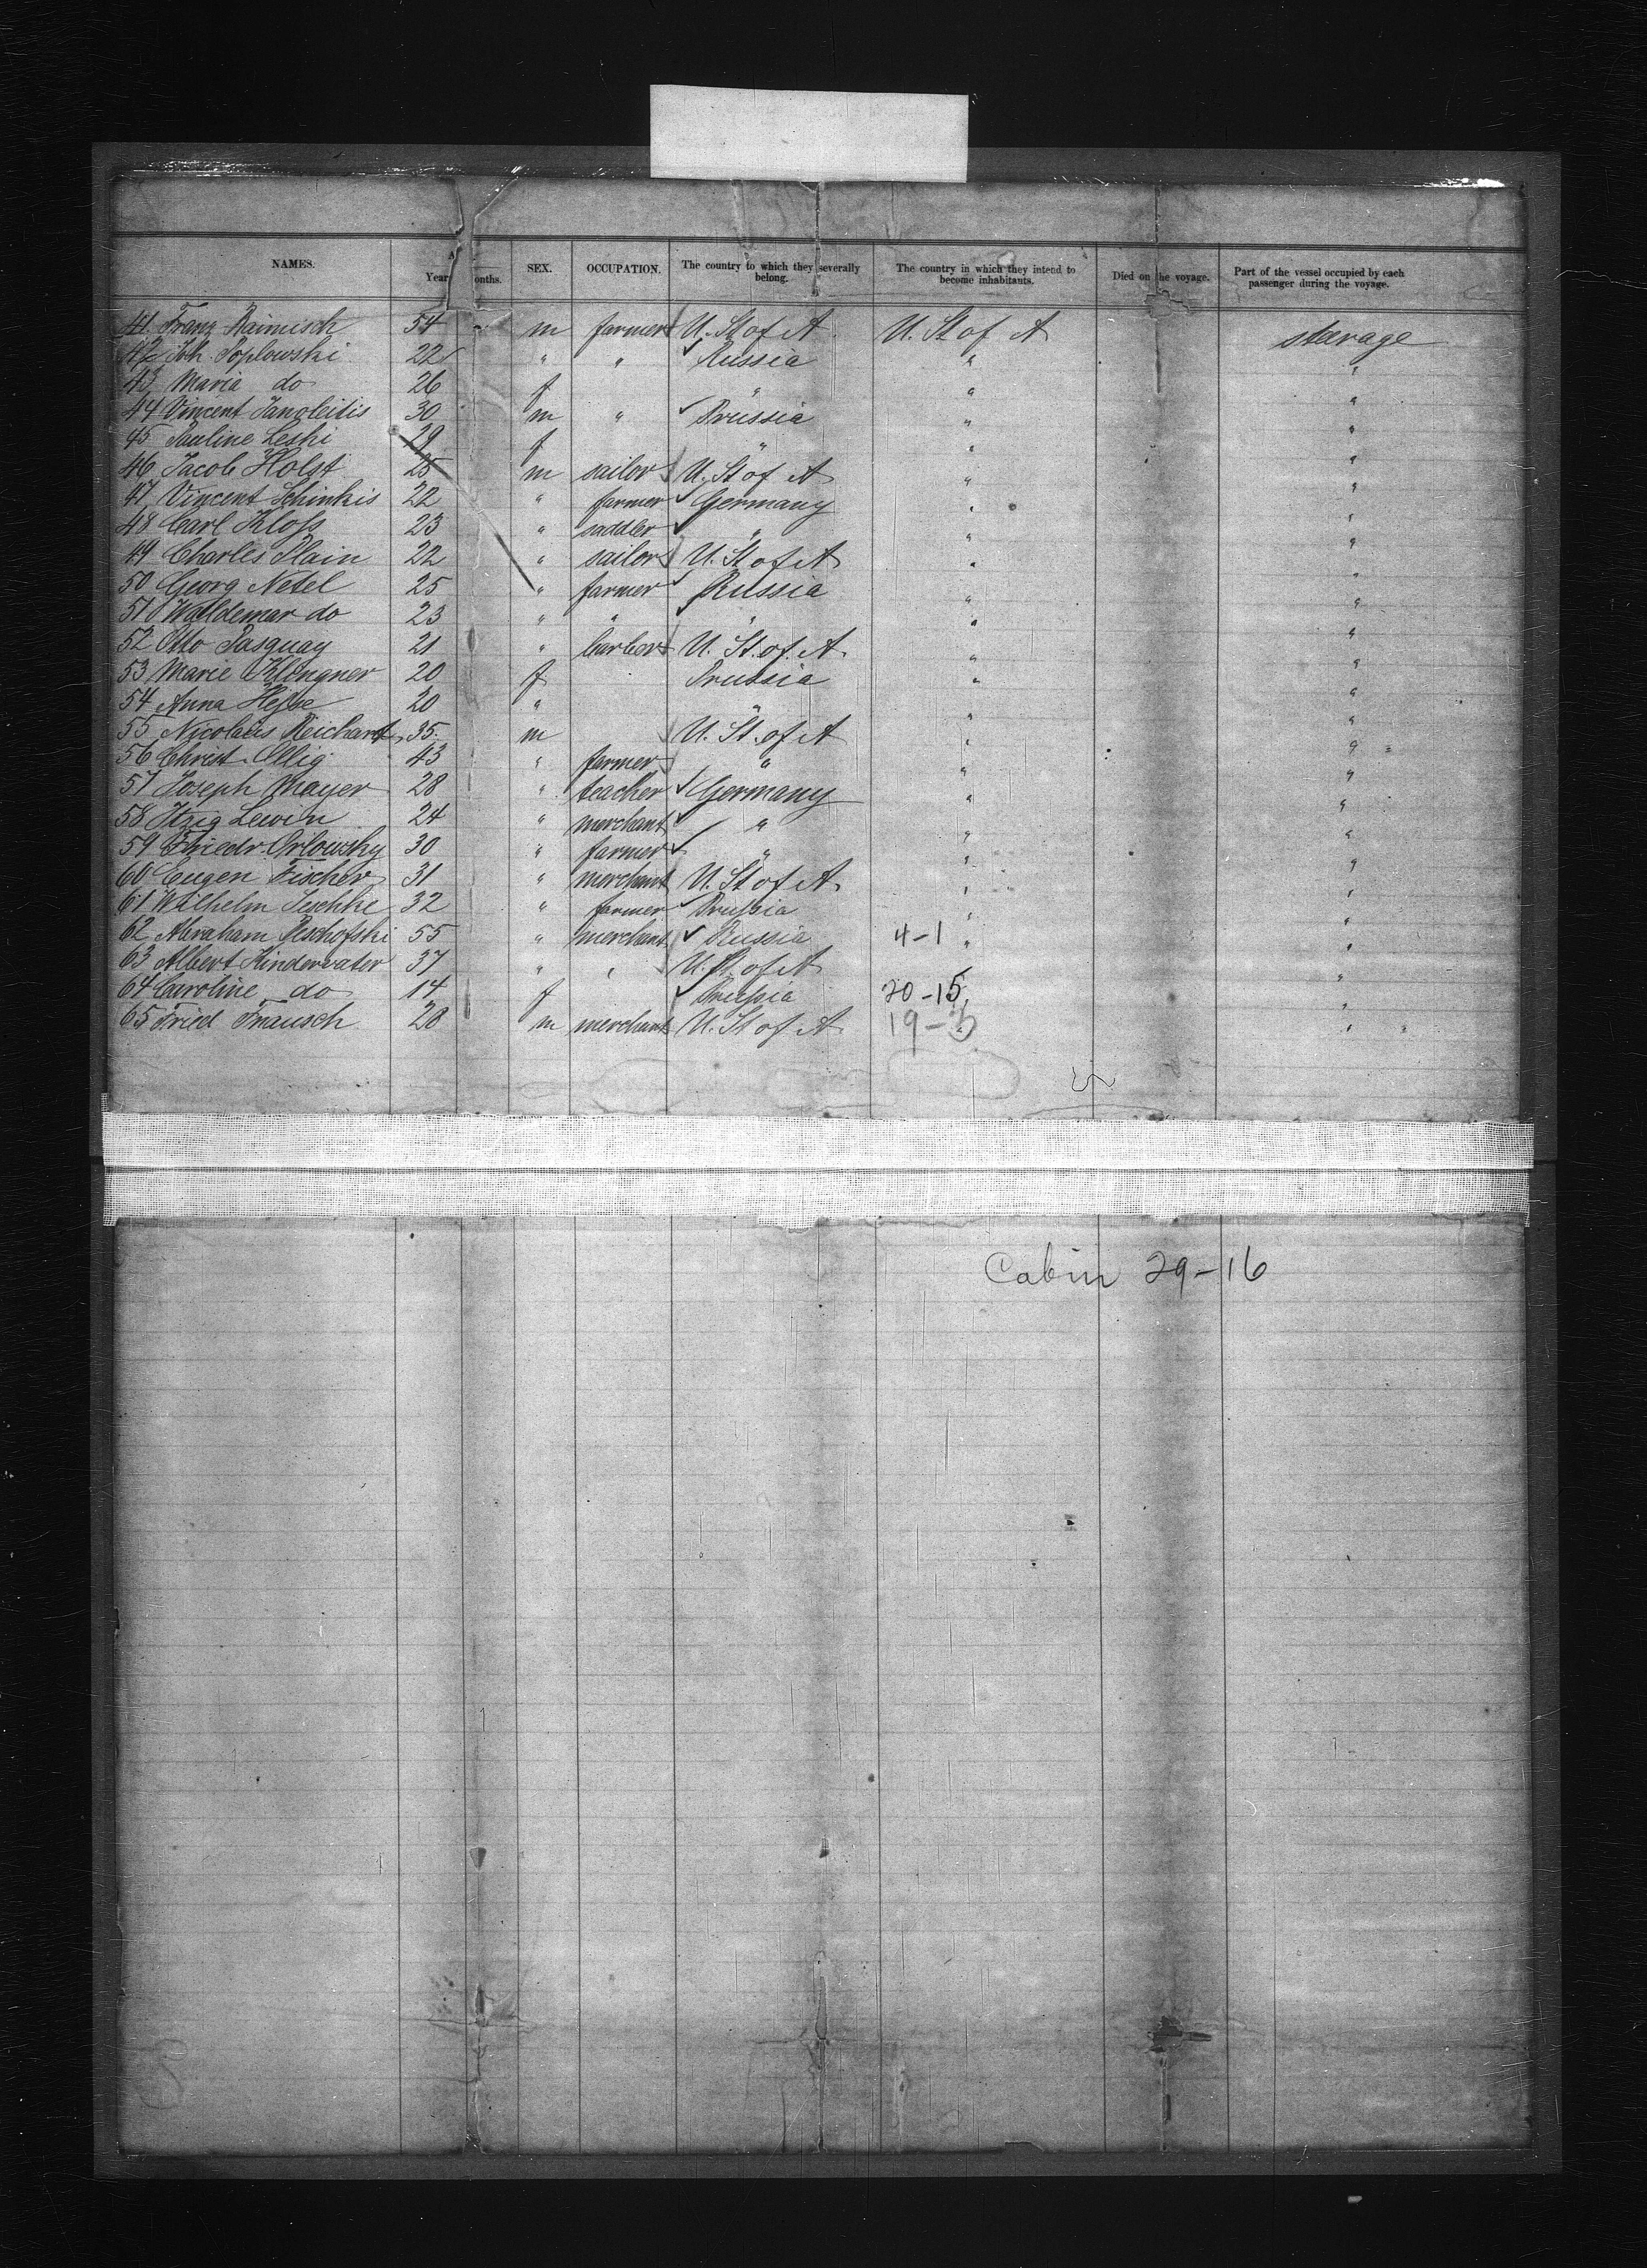 NAMES. Years Months. SEX. OCCUPATION. The country to which they severally belong. The country in which they intend to become inhabitants. Died on the voyage. Part of the vessel occupied by each passenger during the voyage.
41 Franz Raimisch 54 - m farmer U. St of A U. St of A stearage
42 Joh. Poplowski 22 " " Russia " "
43 Maria do 26 f " " "
44 Vincent 30 m " Prussia " "
45 Pauline Leski 29 f " " "
46 Jacob Holst 25 m sailor U. St of A " "
47 Vincent Schinkis 22 " farmer Germany " "
48 Carl Kloss 23 " saddler " " "
49 Charles Plain 22 " sailor U. St of A " "
50 Georg Netel 25 " farmer Russia " "
51 Waldemar do 23 " " " " "
52 Otto Pasquay 21 " barber U. St. of A. " "
53 Marie Klingner 20 f Prussia " "
54 Anna Hesse 20 " " " "
55 Nicolaus Reichart 35. m U. St. of A " "
56 Christ. Ollig 43 " farmer " " "
57 Joseph Mayer 28 " teacher Germany " "
58 Itzig Lewin 24 " merchant " " "
59 Friedr. Orlowsky 30 " farmer " " "
60 Eugen Fischer 31 " merchant U. St of A. " "
61 Wilhelm Peschke 32 " farmer Prussia " "
62 Abraham 55 " merchant Russia 4-1 " "
63 Albert Kindervater 37 " " U. St. of A "
64 Caroline do 14 f Prussia 20-15 "
65 Fried Trausch 28 m merchant U. St of A 19- "
Cabin 29-16